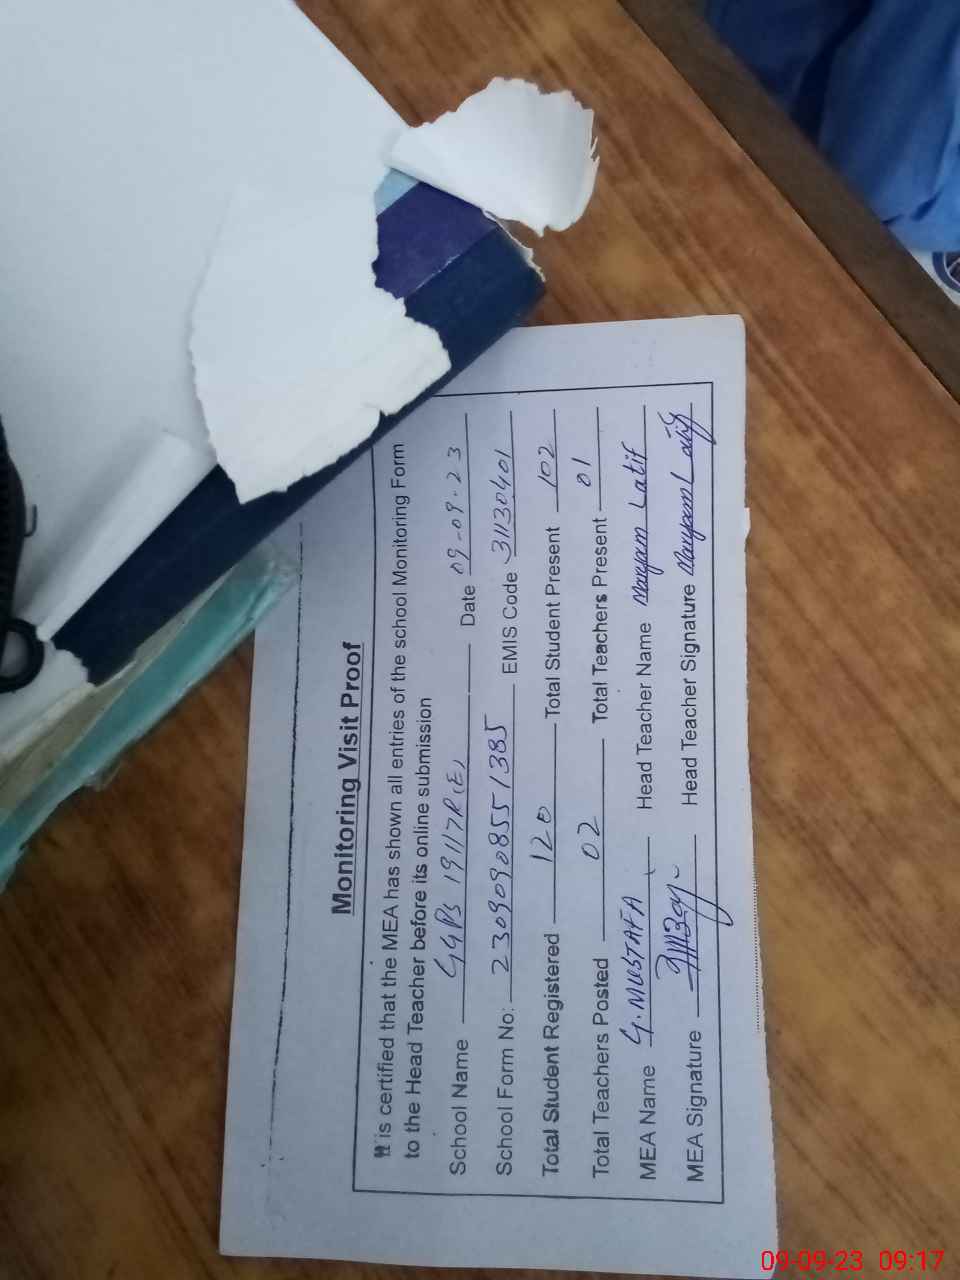 Monitoring Visit Proof
It is certified that the MEA has shown all entries of the school Monitoring Form
to the Head Teacher before its online submission
School Name GGPS 19117R(E) Date 09-09-23
School Form No: 23090908551385 EMIS Code 31130401
Total Student Registered 120 Total Student Present 102
Total Teachers Posted 02 Total Teachers Present 01
MEA Name G. MUSTAFA Head Teacher Name Maryam Latif
MEA Signature Head Teacher Signature Maryam Latif
09-09-23 09:17